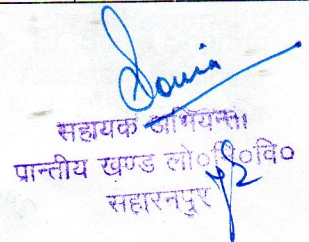 Sonia
सहायक अभियन्ता
प्रान्तीय खण्ड लो०नि०वि०
सहारनपुर